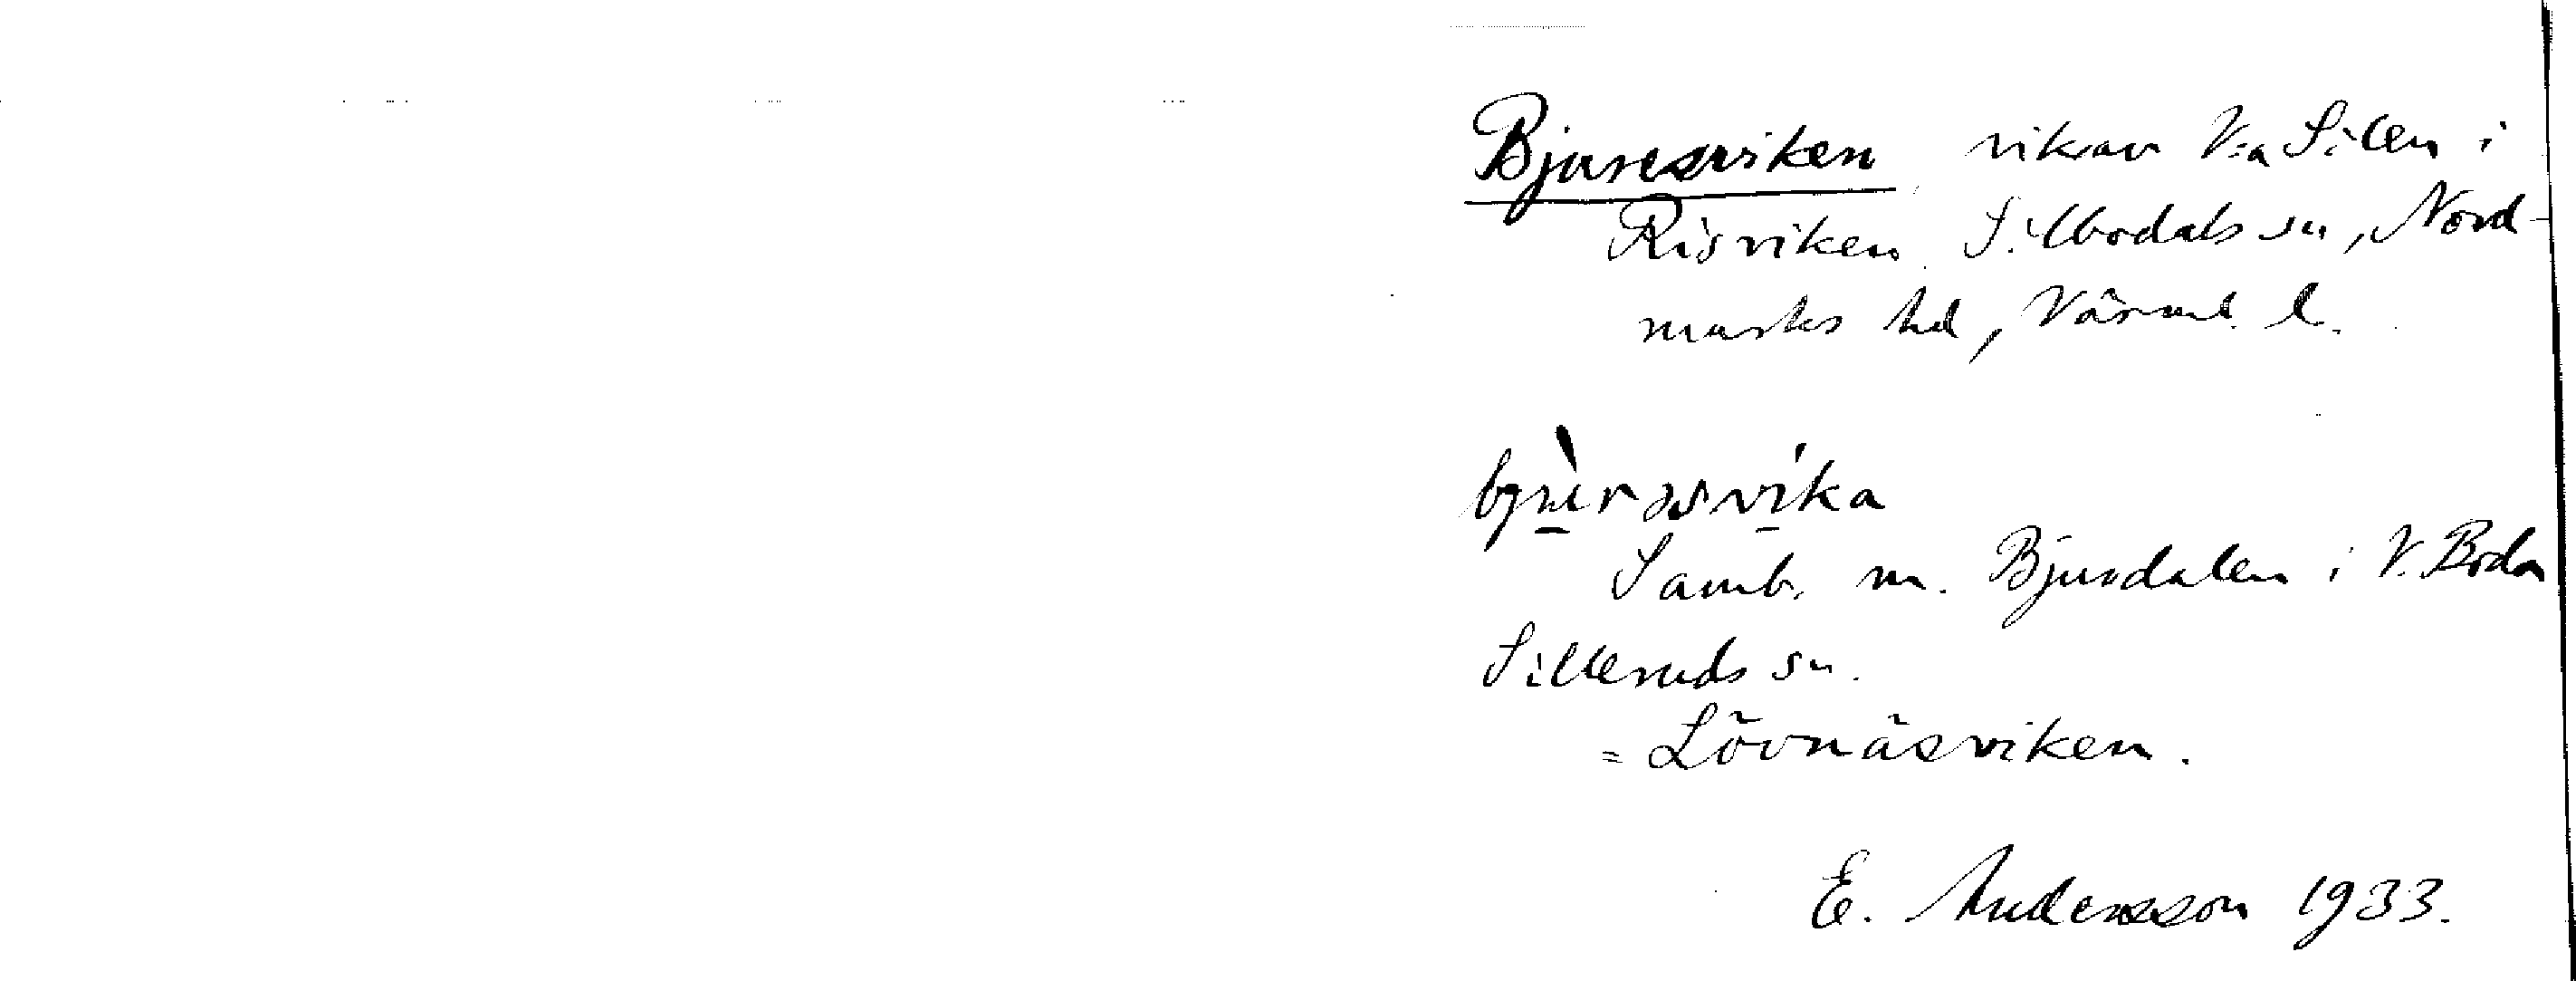 Bjuresviken, vik av V:a Silen i
Risviken, Sillbodals sn, Nord-
marks hd, Värml. l.
bjùrəsvı́ka
Samb. m. Bjurdalen i V. Boda
Silleruds sn.
= Lövnäsviken.
E. Andersson 1933.